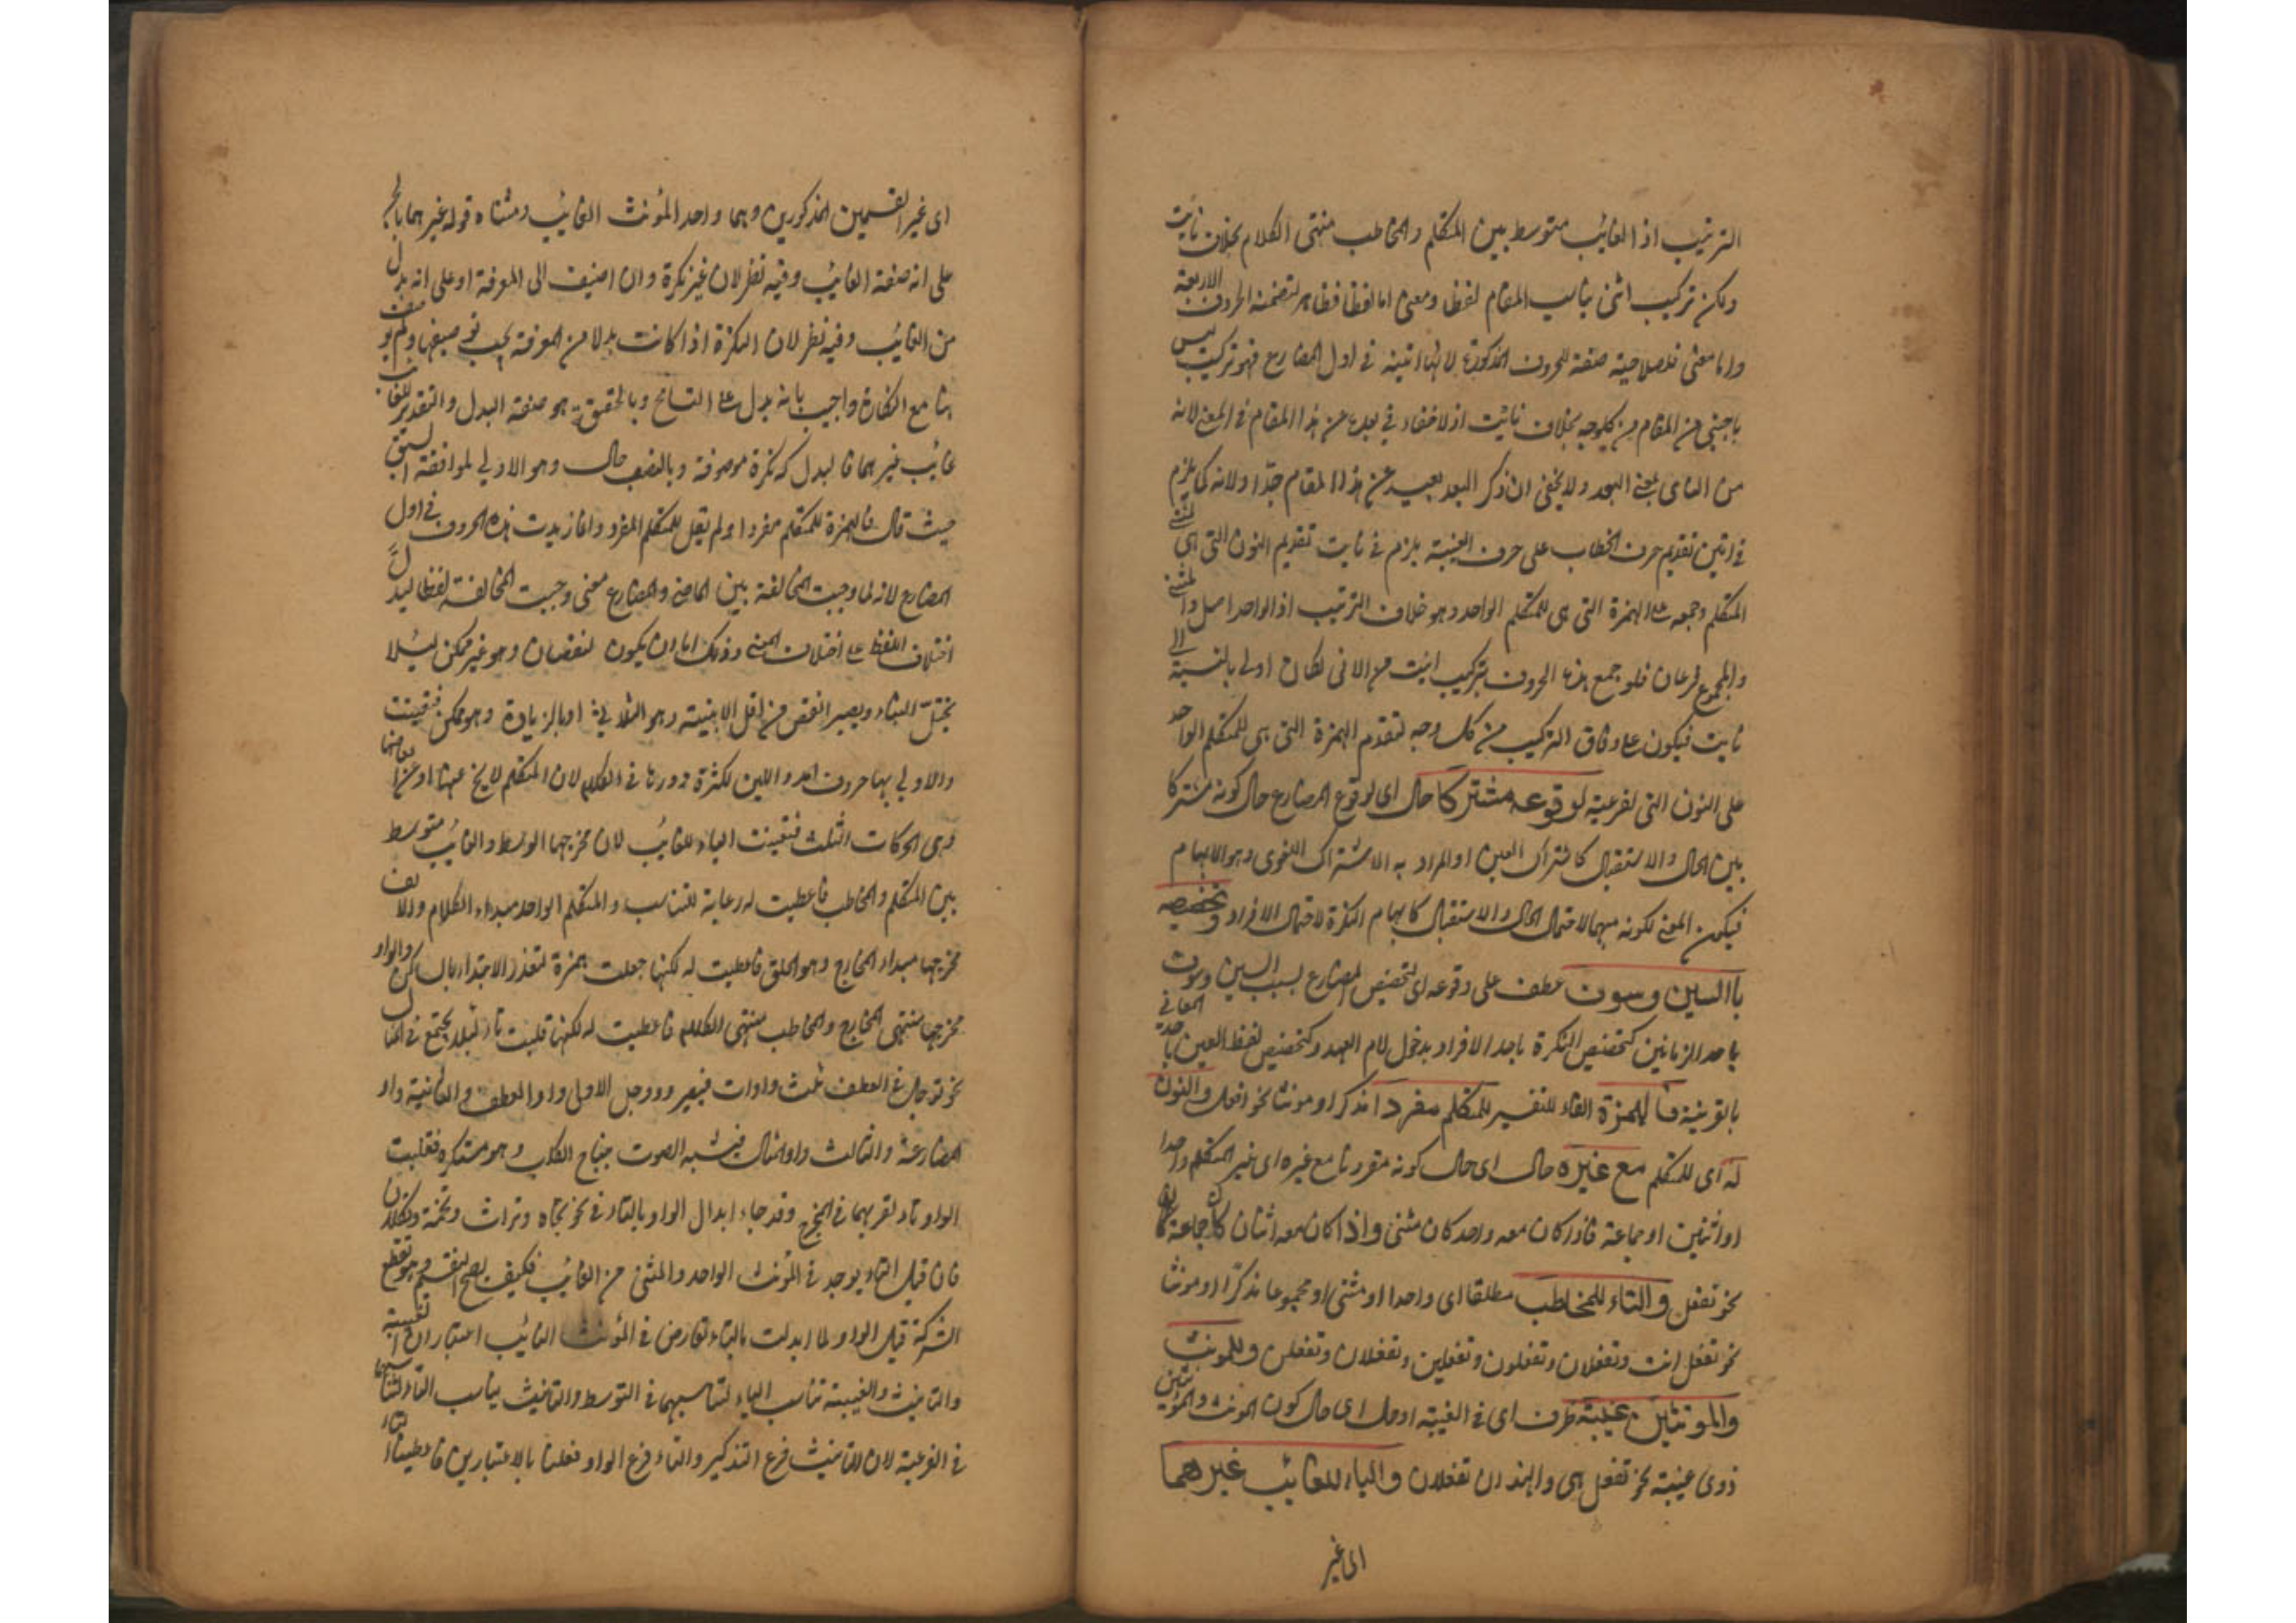 الترتيب اذ الغائب متوسط بين المتكلم والمخاطب منتهى الكلام بخلاف نايت
ولكن تركيب اتين يناسب المقام لفظا ومعنى اما لفظا فظاهر لتضمنه الحروف الاربعة
واما معنى فلصلاحية صفة للحروف المذكورة لانها اتينه في اول المضارع فهو تركيب ليس
باجنبي من المقام من كل وجه بخلاف نايت اذ لا خفاء في بعده عن هذا المقام في المعنى لانه
من الناى بمعنى البعد ولا يخفى ان ذكر البعد بعيد عن هذا المقام جدّا ولانه كما يلزم
في اتين تقديم حرف الخطاب على حرف الغيبة يلزم في نايت تقديم النون التى هى لمثنى
المتكلم وجمعه على الهمزة التى هى للمتكلم الواحد وهو خلاف الترتيب اذ الواحد اصل والمثنى
والمجموع فرعان فلو جمع هذه الحروف بتركيب انيت من الانى لكان اولى بالنسبة الى
نايت فيكون على وفاق التركيب من كل وجه لتقدم الهمزة التى هى للمتكلم الواحد
على النون التى لفرعيته لوقوعه مشتركا حال اى لوقوع المضارع حال كونه مشتركا
بين الحال والاستقبال كاشتراك العين او المراد به الاشتراك اللغوى وهو الابهام
فيكون المعنى لكونه مبهما لاحتمال الحال والاستقبال كابهام النكرة لاحتمال الافراد وتخصيصه
باالسين وسوف عطف على وقوعه اى لتخصيص المضارع بسبب السين وسوف
باحد الزمانين كتخصيص النكرة باحد الافراد بدخول لام العهد وكتخصيص لفظ العين باحد المعانى
بالقرينة فالهمزة الفاء للتفسير للمتكلم مفردا مذكرا او مونثا نحو افعل والنون
له اى للمتكلم مع غيره حال اى حال كونه مقرونا مع غيره اى غير المتكلم واحدا
او اثنين او جماعة فاذا كان معه واحد كان مثنى واذا كان معه اثنان كان جماعة
نحو نفعل والتاء للمخاطب مطلقا اى واحدا او مثنى او مجموعا مذكرّا او مونثا
نحو تفعل انت وتفعلان وتفعلون وتفعلين وتفعلان وتفعلن وللمونث
والمونثين غيبة ظرف اى في الغيبة او حال اى حال كون المونث والمونثين
ذوى غيبة نحو تفعل هى والهندان تفعلان والياء للغائب غيرهما
اى غير
اى غير القسمين المذكورين وهما واحد المؤنث الغائب ومثناه قوله غيرهما بالجر
على انه صفة الغائب وفيه نظر لان غير نكرة وان اضيف الى المعرفة او على انه بدل
من الغائب وفيه نظر لان النكرة اذا كانت بدلا من المعرفة يجب توصيفها ولم يوصف
هنا مع النكارة واجيب بانه بدل على التسامح وبالتحقيق هو صفة البدل والتقدير للغائب
غائب غيرهما فالبدل نكرة موصوفة وبالنصب حال وهو الاولى لموافقة السبق
حيث قال فالهمزة للمتكلم مفردا ولم يقل للمتكلم المفرد وانما زيدت هذه الحروف في اول
المضارع لانه لما وجبت المخالفة بين الماضى والمضارع معنى وجبت المخالفة لفظا ليدل
اختلاف اللفظ على اختلاف المعنى وذلك اما ان يكون لنقصان وهو غير ممكن لئلا
يختل البناء ويصير انقص من اقل الابنية وهو الثلاثى او بالزيادة وهو ممكن فتعينت
والاولى بها حروف المد واللين لكثرة دورها في الكلام لان المتكلم لا يخ عنها او عن ابعاضها
وهى الحركات الثلث فتعينت الياء للغائب لان مخرجها الوسط والغائب متوسط
بين المتكلم والمخاطب فاعطيت له رعاية للتناسب والمتكلم الواحد مبداء الكلام والالف
مخرجها مبداء المخارج وهو الحلق فاعطيت له لكنها جعلت همزة لتعذر الابتداء بالساكن والواو
مخرجها منتهى المخارج والمخاطب منتهى الكلام فاعطيت له لكنها قلبت تاء لئلا يجتمع في المثال
نحو توجل في العطف ثلث واوات فيصير وووجل الاولى واو العطف والثانية واو
المضارعة والثالث واو المثال فيشبه الصوت بنباح الكلاب وهو مستكره فقلبت
الواو تاء لقربهما في المخرج وقد جاء ابدال الواو بالتاء في نحو تجاه وتراث وتخمة وتكلان
فان قيل التاء يوجد في المؤنث الواحد والمثنى من الغائب فكيف يصح التقسيم وهو يقطع
الشركة قيل الواو لما ابدلت بالتاء تعارض في المؤنث الغائب اعتباران الغيبة
والتانيث والغيبة تناسب الياء لتناسبهما في التوسط والتانيث يناسب التاء لتناسبهما
في الفرعية لان التانيث فرع التذكير والتاء فرع الواو فعلنا بالاعتبارين فاعطينا التاء